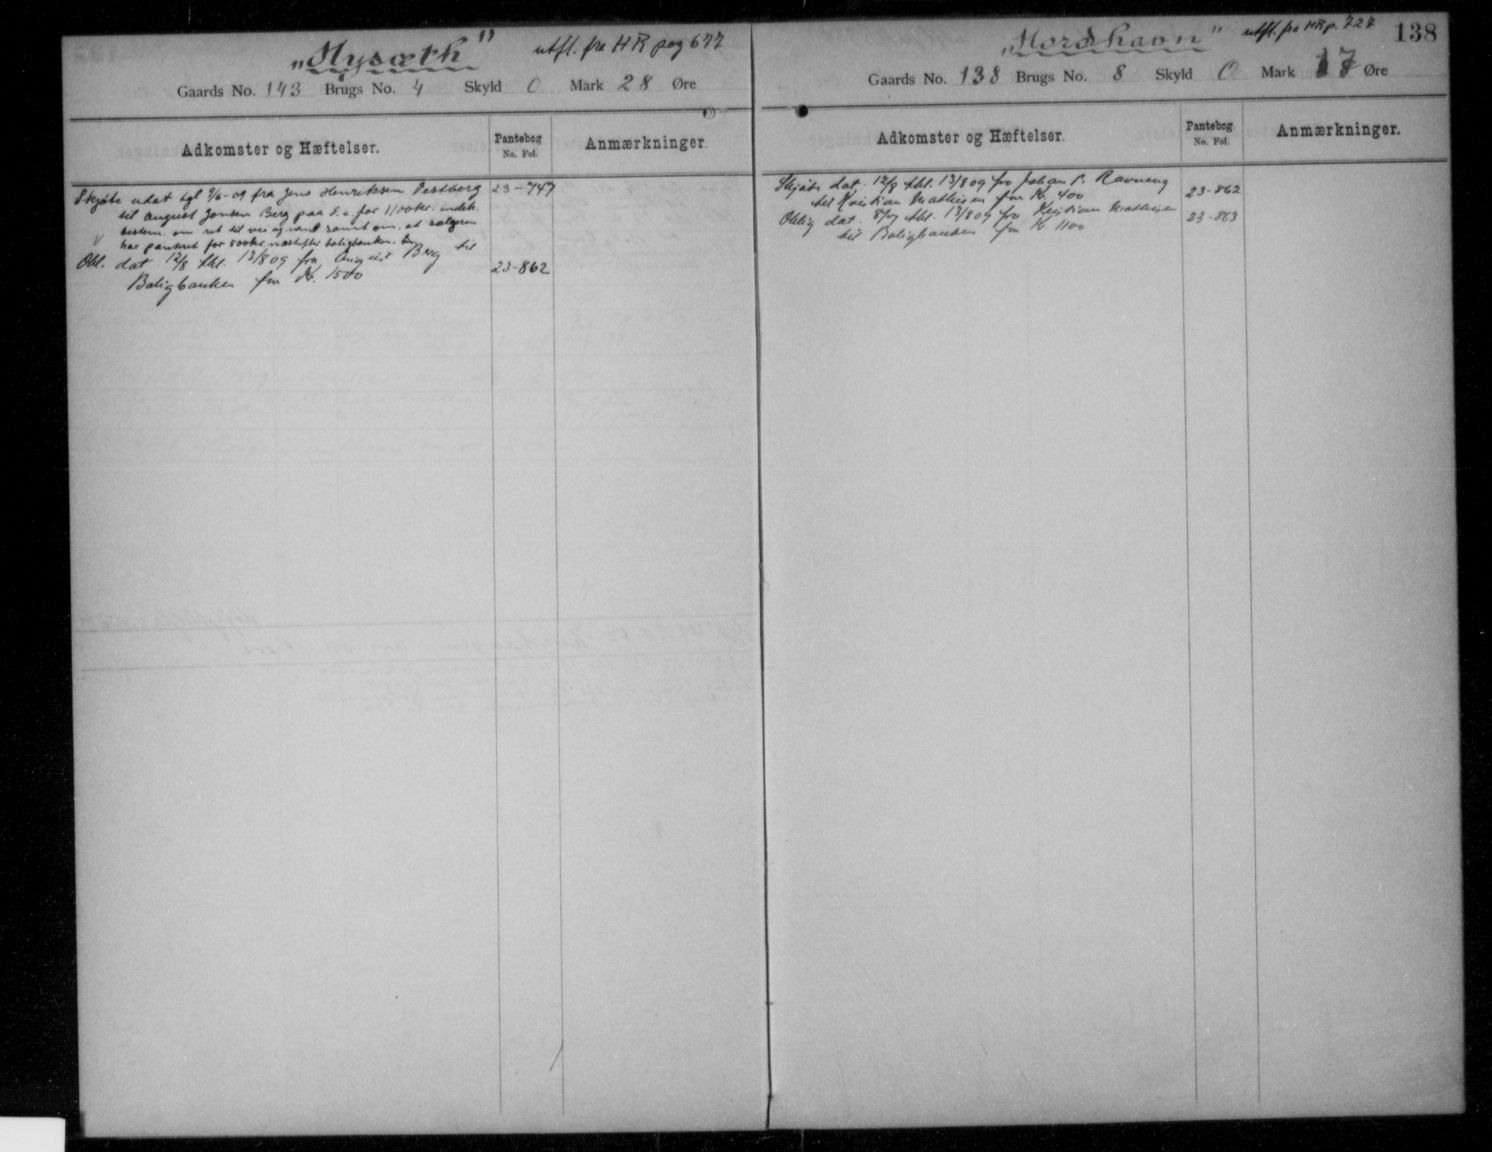 „Nysæth" utfl. fra HR pag 677
Gaards No. 143 Brugs No. 4 Skyld 0 Mark 28 Øre
Adkomster og Hæftelser.
Pantebog
No. Fol.
Anmærkninger.
Skjøte udat tgl 9/6-09 fra Jens Henriksen Pestberg 23-747
til August Jonsen Berg paa d.e for 1100 kr. indeh.
bestem. om ret til vei og vand samt om, at sælgeren
har panteret for 500 kr næstefter boligbanken.
Obl. dat 12/8 thl. 13/8 09 fra August Berg til
Boligbanken for K. 1500 23-862
„Nordhavn" utfl. fra HR p. 727
138
Gaards No. 138 Brugs No. 8 Skyld 0 Mark 17 Øre
Adkomster og Hæftelser.
Pantebog
No. Fol.
Anmærkninger.
Skjøte dat. 12/8 thl. 13/8 09 fra Johan P. Ravneng
til Kristian Mathisen for K. 400 23-862
Oblig dat. 8/7 thl. 13/8 09 fra Kristian Mathisen 23-863
til Boligbanken for K 1100